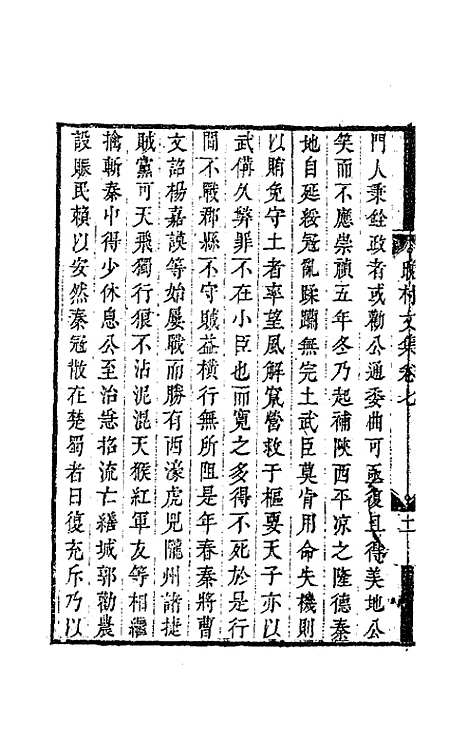 門人秉銓政者或勸公通委曲可亟復且得美地公
笑而不應崇禎五年冬乃起補陝西平凉之隆德秦
地自延綏寇亂蹂躪無完土武臣莫肯用命失機則
以賄免守土者率望風解竄營救于樞要天子亦以
武備久弊罪不在小臣也而寬之多得不死於是行
間不戰郡縣不守賊益橫行無所阻是年春秦將曹
文詔楊嘉謨等始屢戰而勝有西濠虎兕隴州諸捷
賊黨可天飛獨行狼不沾泥混天猴紅軍友等相繼
擒斬秦中得少休息公至治慈招流亡繕城郭勸農
設賑民賴以安然秦寇散在楚蜀者日復充斥乃以
村文集卷七
十一